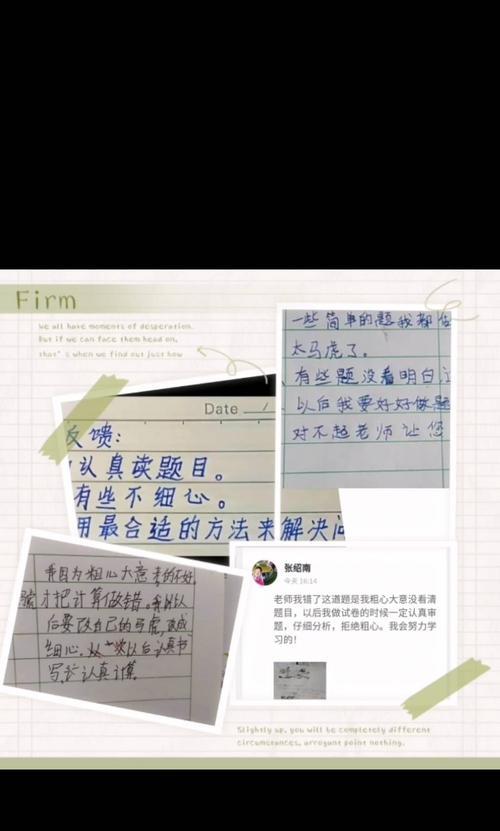 Firm
We all have moments of desperation.
But if we can face them head on,
that's when we find out just how
一些简单的题我都
太马虎了。
有些题没看明白
以后我要好好做题
对不起老师让您
Date
反馈:
认真读题目。
有些不细心。
用最合适的方法来解决问
我因为粗心大意
才把计算做错。我以
后要改自己的马虎,改成
细心。以后认真书
写,认真计算。
张绍南
今天 16:14
老师我错了这道题是我粗心大意没看清
题目,以后我做试卷的时候一定认真审
题,仔细分析,拒绝粗心。我会努力学
习的!
Slightly up, you will be completely different
circumstances, arrogant point nothing.